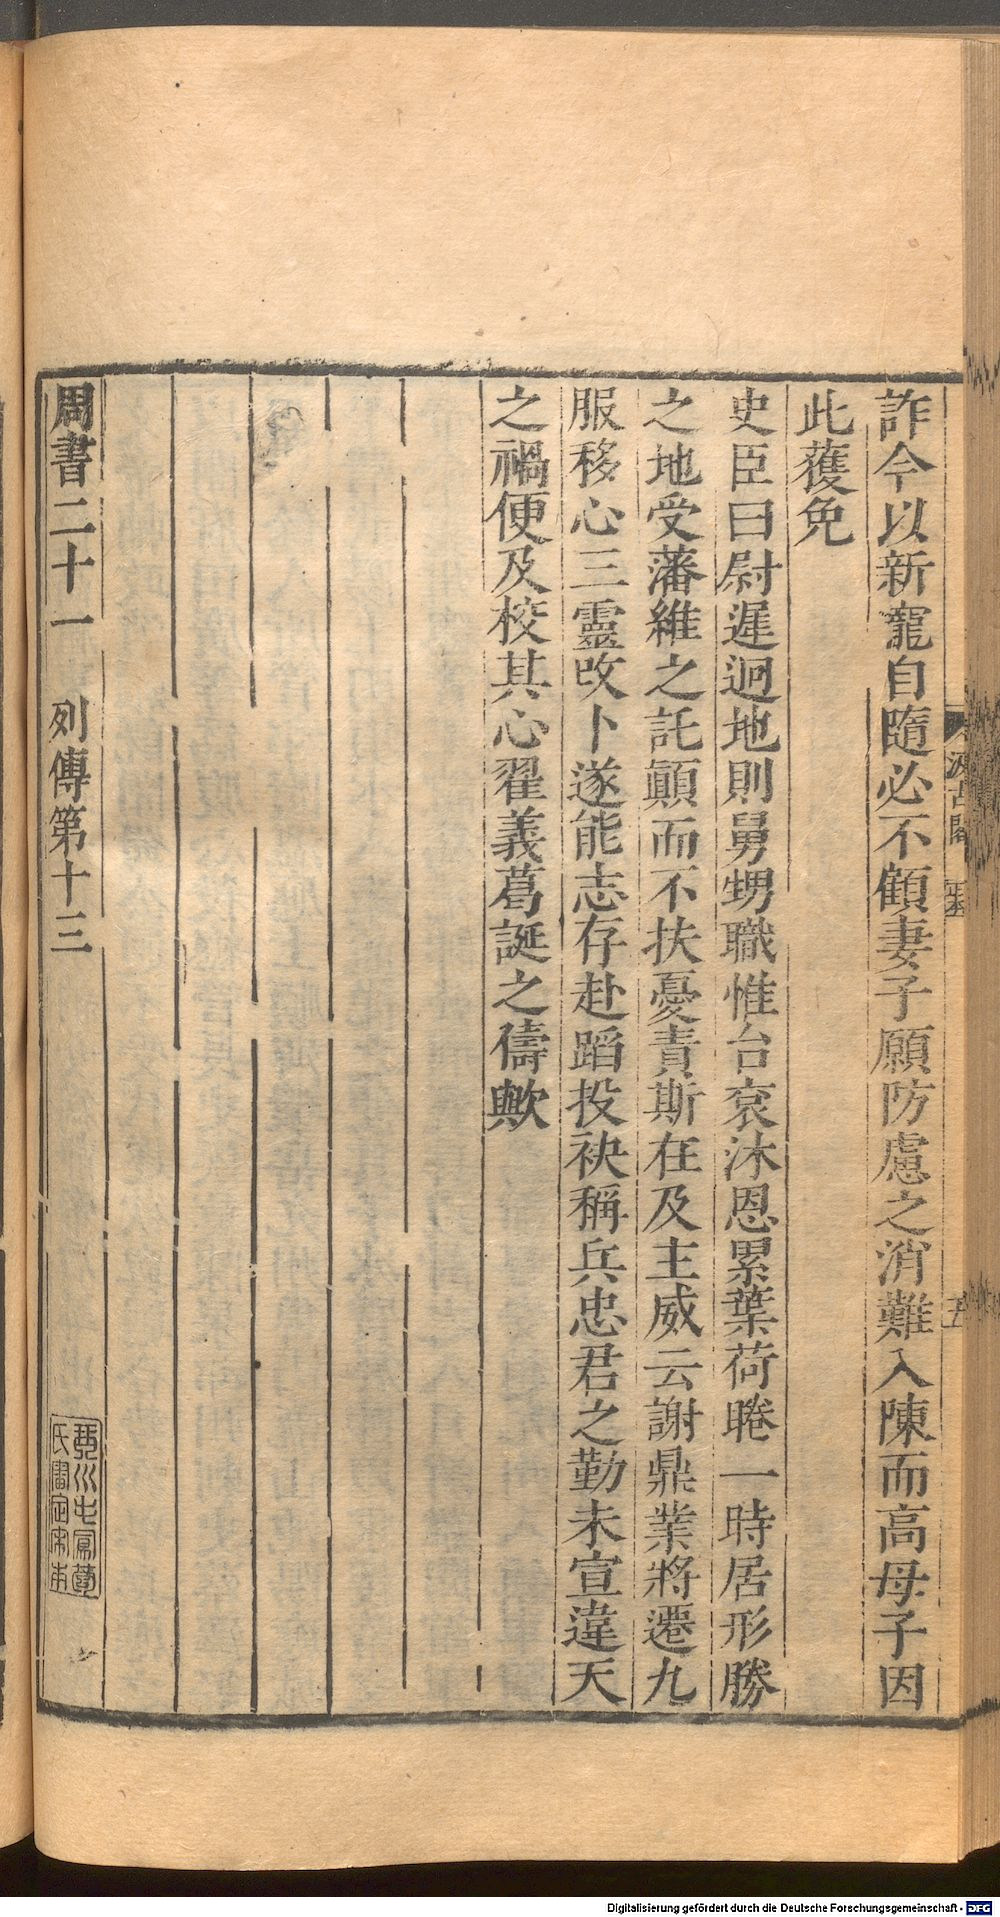 詐今以新寵自隨必不顧妻子願防慮之消難入陳而高母子因
此獲免
史臣曰尉遲迥地則舅甥職惟台袞沐恩累葉荷睠一時居形勝
之地受藩維之託顚而不扶憂責斯在及主威云謝鼎業將遷九
服移心三靈改卜遂能志存赴蹈投袂稱兵忠君之勤未宣違天
之禍便及校其心翟義葛誕之儔歟
周書二十一 列傳第十三
汲古閣
五
Digitalisierung gefördert durch die Deutsche Forschungsgemeinschaft - DFG